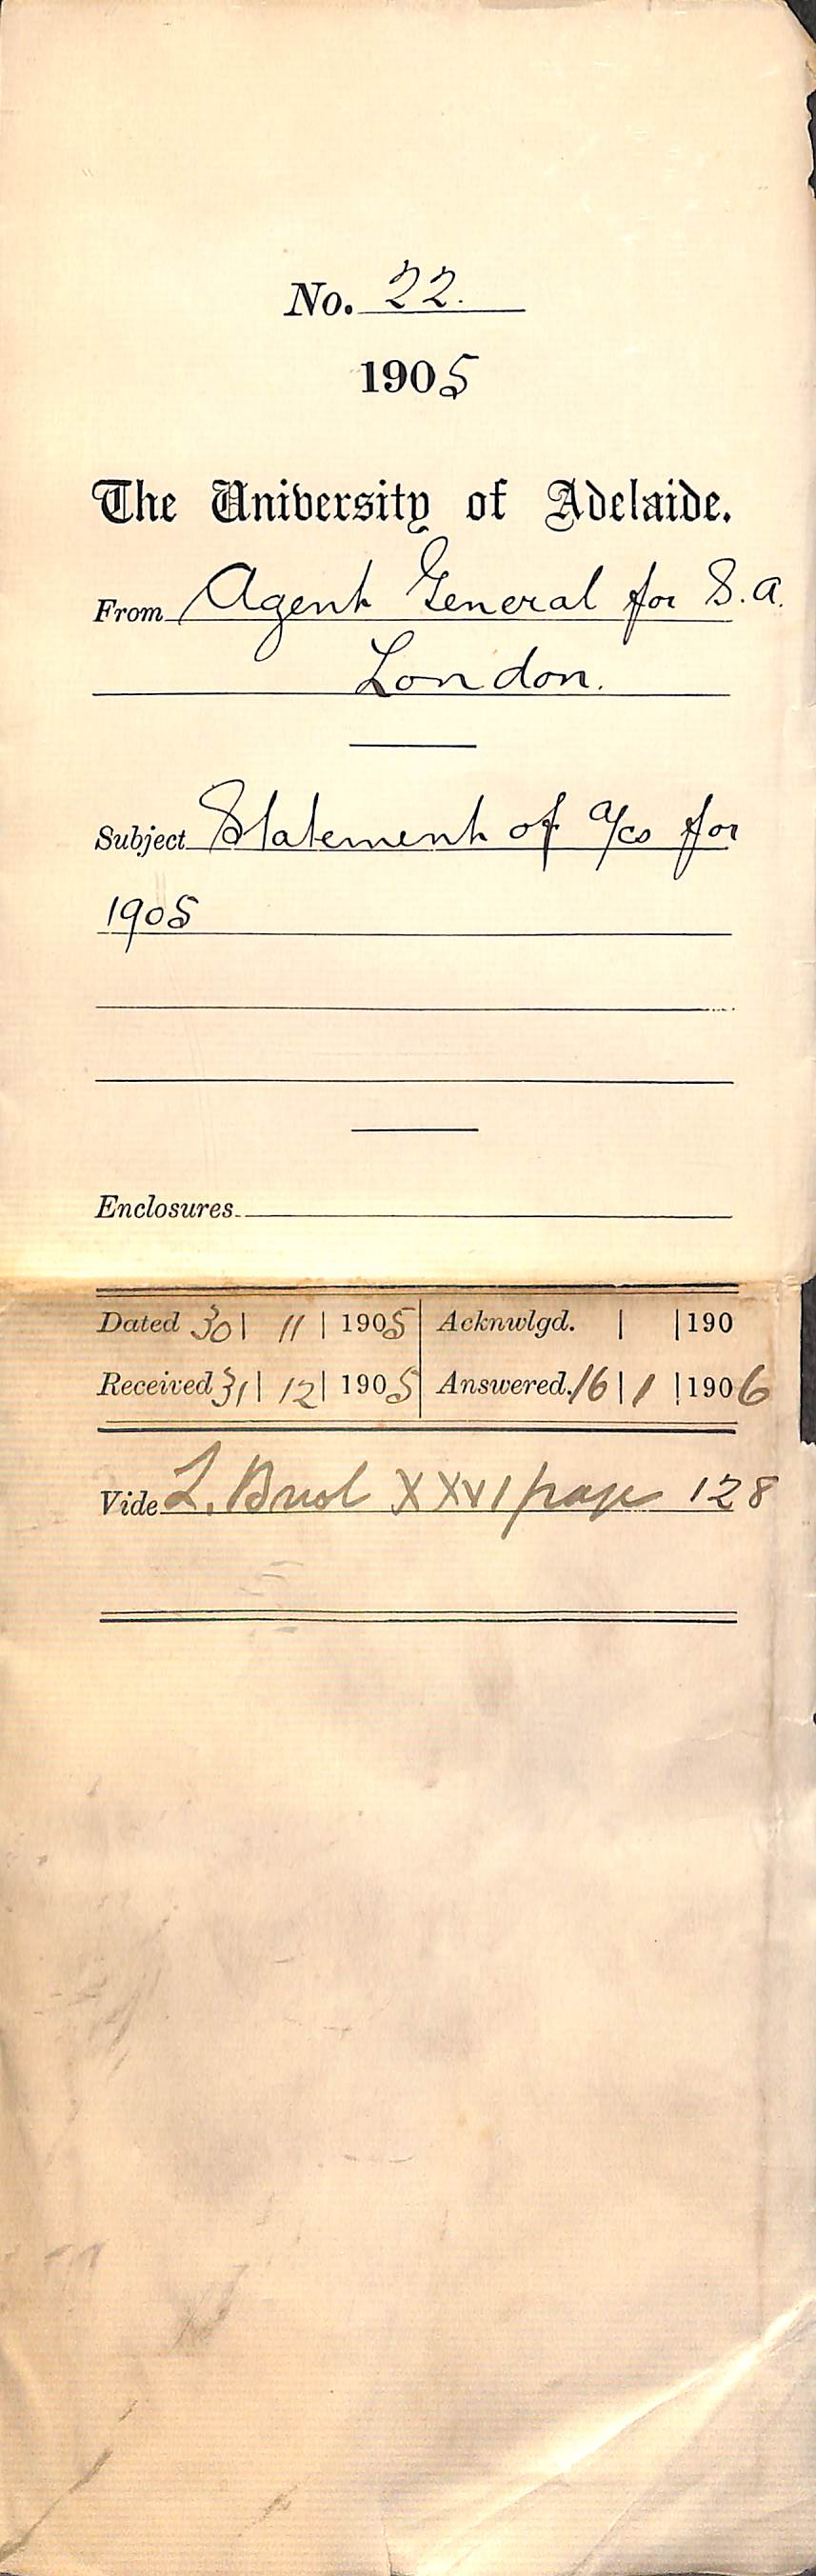 No. 22.
1905
The University of Adelaide.
From Agent General for S.A.
London.
Subject Statement of a/cs for
1905
Enclosures
Dated 30 | 11 | 1905 | Acknwlgd. | | 190
Received 31 | 12 | 1905 | Answered. 16 | 1 | 1906
Vide L. Book XXVI page 128